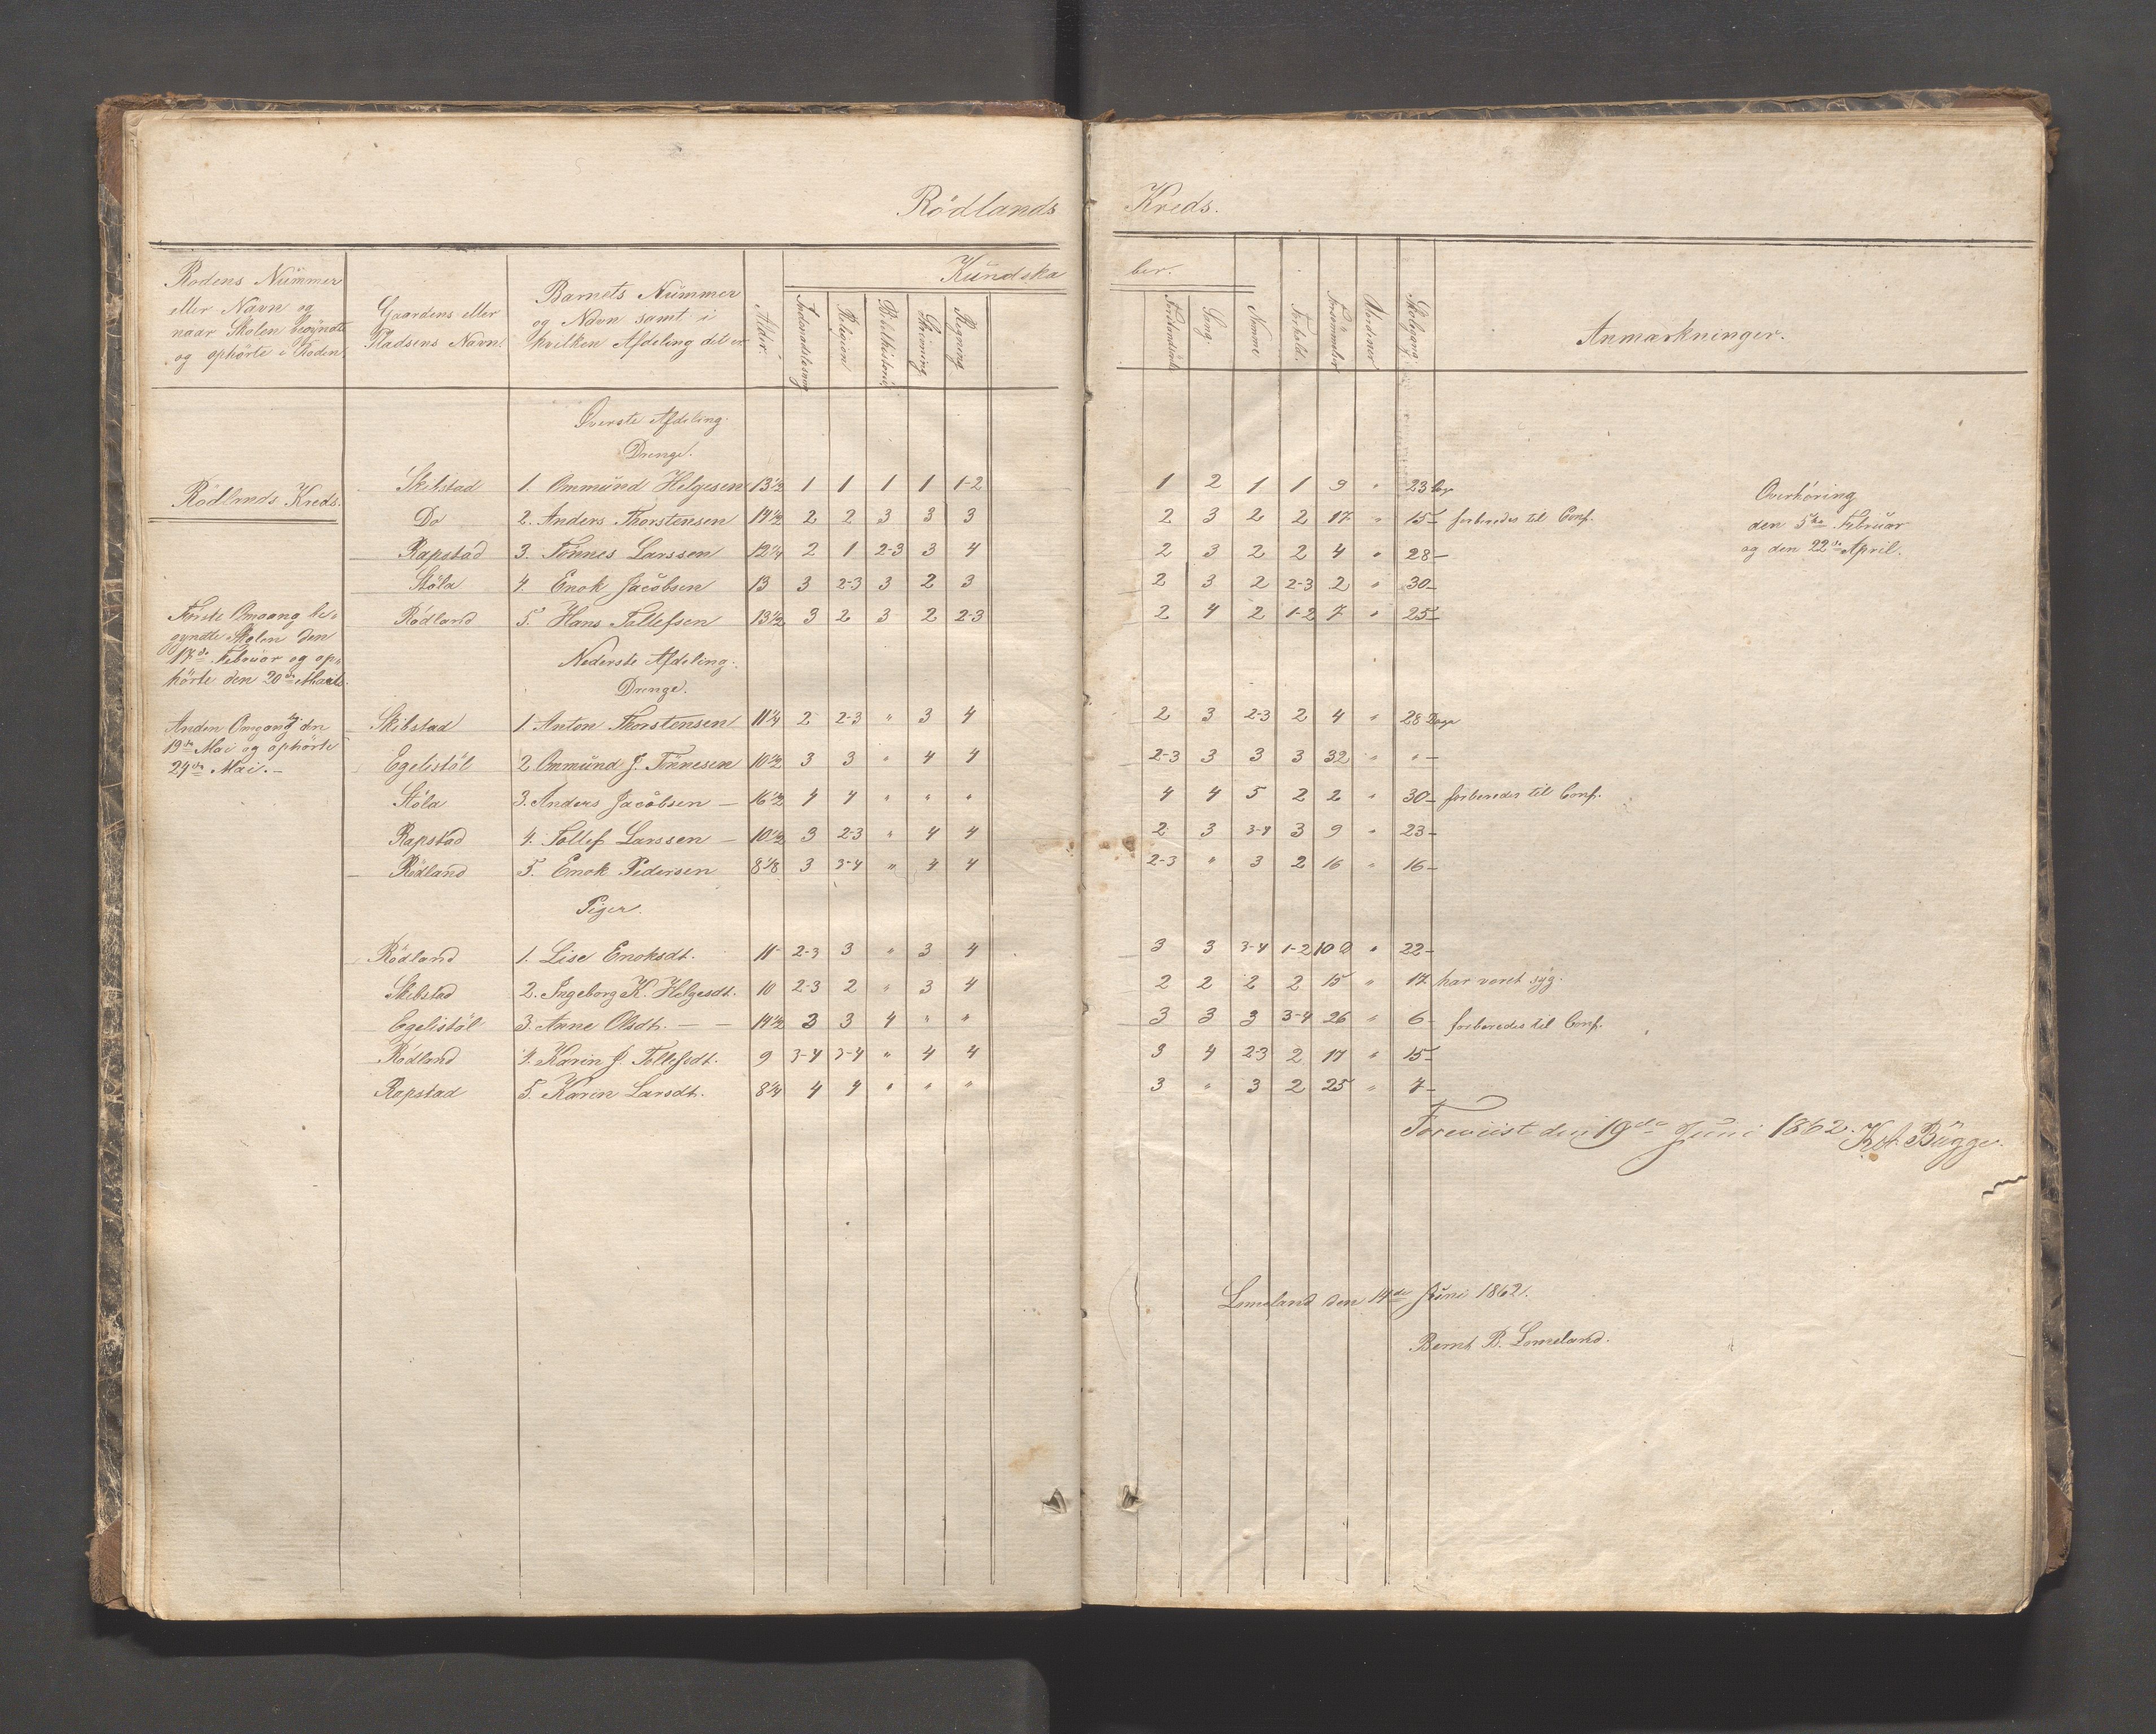 Rödlands Kreds.
Rodens Nümmer
eller Navn og
naar Skolen begyndte
og ophörte i Roden
Gaardens eller
Pladsens Navn.
Barnets Nümmer
og Navn samt i
hvilken Afdeling det er
Alder.
Kündska ber.
Indenadslesning
Religion
Bibelhistorie
Skrivning
Regning
Forstandsöv.
Sang.
Nemme
Forhold.
Forsömmelser
Verdener
Skolegang
Anmærkninger.
Överste Afdeling.
Drenge.
Rödlands Kreds.
Skibstad 1. Ommünd Helgesen 13 1/2 1 1 1 1 1-2 1 2 1 1 9 " 23 Dage
Do 2. Anders Thorstensen 14 1/2 2 2 3 3 3 2 3 2 2 17 " 15 – forberedes til Conf.
Rapstad 3. Tönnes Larssen 12 1/4 2 1 2-3 3 4 2 3 2 2 4 " 28 –
Stöla 4. Enok Jacobsen 13 3 2-3 3 2 3 2 3 2 2-3 2 " 30 –
Rödland 5. Hans Tollefsen 13 1/2 3 2 3 2 2-3 2 4 2 1-2 7 " 25 –
Overhöring
den 5te Februar
og den 22de April.
Förste Omgang be-
gyndte Skolen den
17de Februar og op-
hörte den 20de Marts.
Nederste Afdeling.
Drenge.
Anden Omgang den
19de Mai og ophörte
24de Mai. –
Skibstad 1. Anton Thorstensen 11 1/4 2 2-3 " 3 4 2 3 2-3 2 4 " 28 Dage
Egelistöl 2. Ommünd J. Tönnesen 10 1/2 3 3 " 4 4 2-3 3 3 3 32 " " –
Stöla 3. Anders Jacobsen – 16 1/2 4 4 " " " 4 4 5 2 2 " 30 – forberedes til Conf.
Rapstad 4. Tollef Larssen – 10 1/2 3 2-3 " 4 4 2 3 3-4 3 9 " 23 –
Rödland 5. Enok Pedersen 8 1/8 3 3-4 " 4 4 2-3 " 3 2 16 " 16 –
Piger.
Rödland 1. Lise Enoksdt. 11 2-3 3 " 3 4 3 3 3-4 1-2 10 " 22 –
Skibstad 2. Ingeborg K. Helgesdt. 10 2-3 2 " 3 4 2 2 2 2 15 " 17 har veret syg.
Egelistöl 3. Anne Olsdt. – – 14 1/2 3 3 4 " " 3 3 3 3-4 26 " 6 – forberedes til Conf.
Rödland 4. Karin J. Tollefsdt. 9 3-4 3-4 " 4 4 3 4 2-3 2 17 " 15 –
Rapstad 5. Karen Larsdt. 8 1/4 4 4 " " " 3 " 3 2 25 " 7 –
Foreviist den 19de Juni 1862. Bügge.
Lomeland den 14de Jüni 1862.
Bernt B. Lomeland.